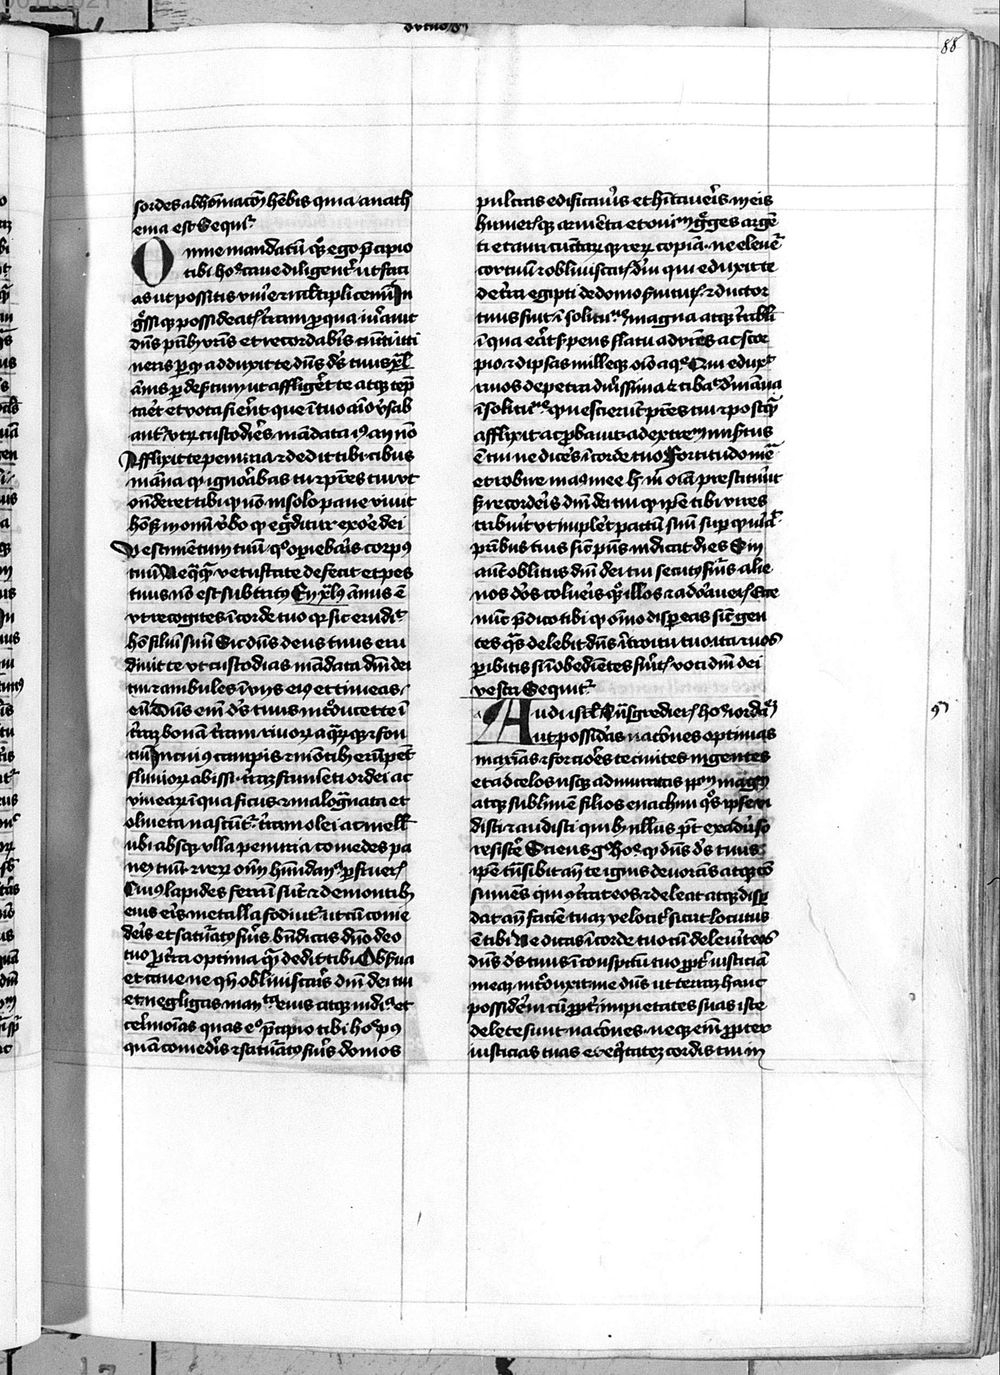 88
sordes abhōinacōn hēbis quia anath
ema est Sequit᷑
Omne mandatū qd ego p̄cipio
tibi hoᵉ caue diligent᷑ ut faci
as ut possitis viuere ⁊ multiplicemī In
gressiq possideatis terram p qua iurauit
dn̄s pr̄ibꝫ vr̄is et recordabis cuncti iti
neris p qd adduxit te dn̄s ds̄ tuus xl
ānis p desertum ut affligeret te atqꝫ tep̄
taret et nota fierent que ī tuo aīo v̓sab
ant᷑ vtrꝫ custodires mādata ī an nō
Afflixit te penuria ⁊ dedit tibi cibus
māna qd ignorabas tu ⁊ pr̄es tui ut
oīnderet tibi qd nō in solo pane viuit
hō sꝫ in omī v̓bo qd egredit᷑ ex ore dei
Vestimentum tuū qo operiebaris corpus
tuū Neq̄q̄ vetustate defecit et pes
tuus nō est subtritus En xl annus ē
vt recogites ī corde tuo qd sic erudit
hō filiū suū Sic dn̄s deus tuus eru
diuit te vt custodias mādata dn̄i dei
tui ⁊ ambules ī vijs eius et timeas
eū Dn̄s em̄ ds̄ tuus introducet te ī
terrā bonā terrā riuorꝫ aquarūqꝫ ⁊ fon
tiū In cuius campis ⁊ mōtibꝫ erūpēt
fluuiorꝫ abissi terrā frumenti ordei ac
vinearꝫ ī qua ficus ⁊ malogranata et
oliueta nascunt᷑ terram olei ac mellis
ubi absqꝫ ulla penuria comedes pa
nem tuū ⁊ rerꝫ om̄ habundancia perfrueris
Cuius lapides ferrū sunt ⁊ de montibꝫ
eius eris metalla fodiūt᷑ ut cū come
deris et saturatus fueris bn̄dicas dn̄o deo
tuo p terra optima quā dedit tibi Obserua
et caue ne qn̄ obliuiscaris dn̄i dei tui
et negligas mandata eius atqꝫ iudicia et
cerimoīas quas ego p̄cipio tibi hoᵉ pꝰ
quā comederis ⁊ saturatus fueris domos
pulcras edificaueris et hītaueris in eis
hueri sqꝫ armēta et ouiū greges argē
ti et auri cunctarꝫqꝫ rerꝫ copiā ne eleuet᷑
cor tuū ⁊ obliuiscaris dn̄i qui eduxit te
de terra egipti de domo seruitutis ⁊ ductor
tuus fuit ī solitudine magna atqꝫ terribili
ī qua erat serpens flatu adurens ac scor
pio ⁊ dipsas nulleqꝫ oīo aque Qui eduxit
riuos de petra durissima ⁊ cibauit māna
ī solitudine qd nescierunt pr̄es tui ⁊ postqꝫ
afflixit ac p̄bauit ad extremū mis̄tus
ē tui ne diceres ī corde tuo Fortitudo mea
et robur manus mee hec m̄ oīa prestiterunt
sꝫ recorderis dn̄i dei tui qd ipse tibi vires
tribuit vt impleret pactū suū sup quo iurauit
pr̄ibus tuis sicut presens indicat dies Sin
aut oblitus dn̄i dei tui secutus fueris alie
nos deos colueris qꝫ illos ⁊ adoraueris Ecce
nunc p̄dico tibi qd oīno dispereas sicut gen
tes quas deleuit dn̄s ī introitu tuo ita ⁊ vos
peribitis si īobediētes fueritis voci dn̄i dei
vestri Sequit᷑
Audi isrl̄ Tu ingredieris hoᵉ iordanē
ut possideas nacōnes optimas
maxīas ⁊ forciores te ciuites ingentes
et ad celos usqꝫ admuratas ppm̄ magnū
atqꝫ sublimē filios enachim qs ipse vi
disti ⁊ audisti quibꝫ nullus pt ex aduerso
resistere Scies go hoᵉ qd dn̄s ds̄ tuus
ipse transibit an̄ te ignis deuorās atqꝫ cō
sumēs qui conterat eos ⁊ deleat atqꝫ disper
dat an̄ faciē tuā velociter sicut locutus
ē tibi Ne dicas ī corde tuo cū deleuerit eos
dn̄s ds̄ tuus ī conspectu tuo ppt᷑ iusticiā
meā introduxit me dn̄s ut terrā hanc
possiderē cū ppt᷑ impietates suas iste
delete sunt nacōnes neqꝫ em̄ propter
iusticias tuas et eq̄tatē cordis tui in